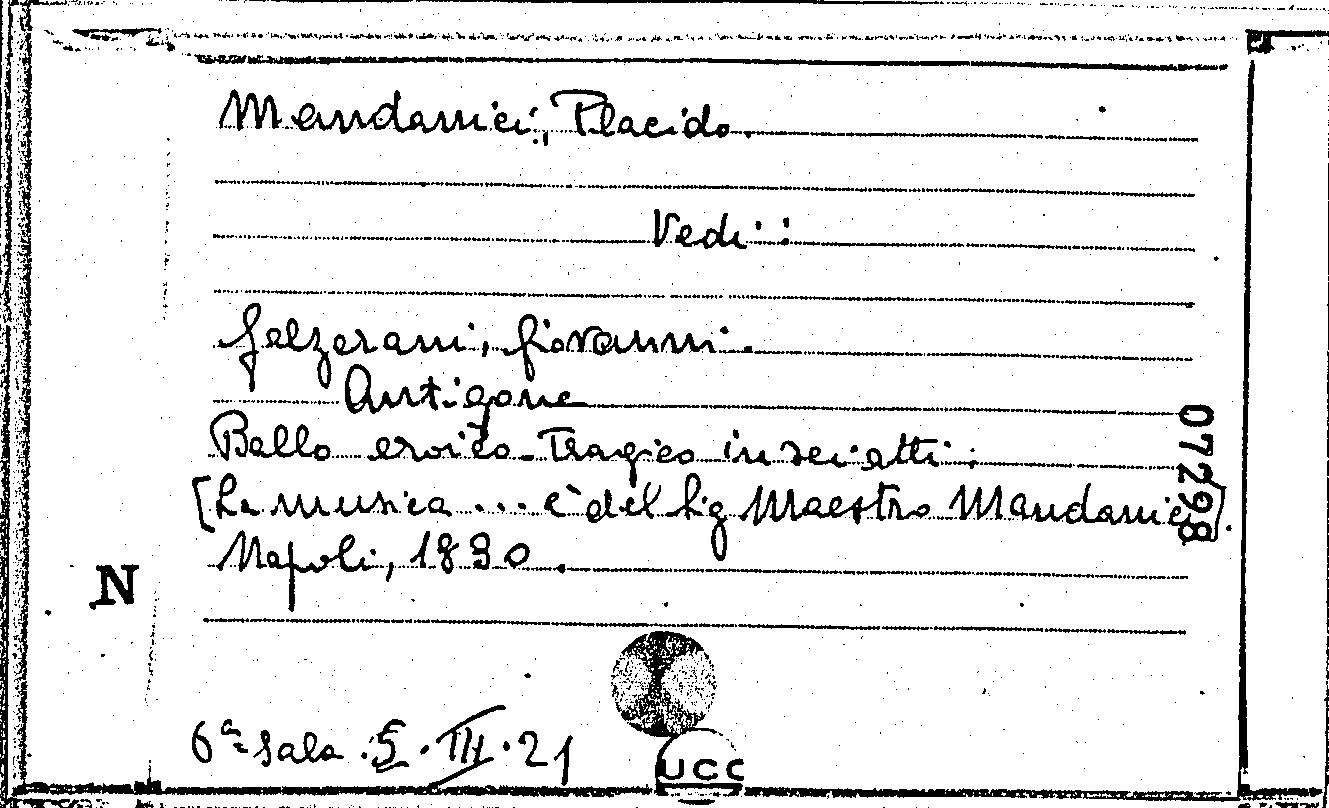 Mandanici, Placido.
Vedi:
Galzerani, Giovanni.
Antigone
Ballo eroico-tragico in sei atti.
[La musica ... è del Sig Maestro Mandanici].
Napoli, 1830.
07298
N
6ª Sala . 5 . III . 21
UCC